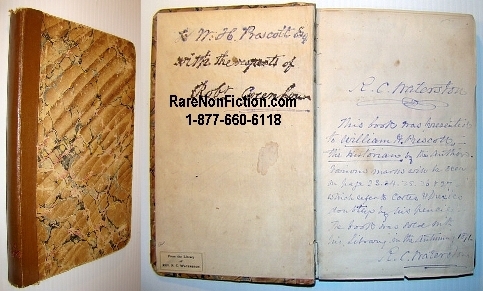 to W. H. Prescott Esq
with the regards of
Robt Greenhow
RareNonFiction.com
1-877-660-6118
From the Library
of
REV. R. C. WATERSTON
R. C. Waterston
This book was presented
to William H. Prescott
the historian, by the Author.
Various marks will be seen
on page 22.
which refer to Cortes & Mexico
done by his pencil.
The book was sold with
his library in the Autumn 1871.
R. C. Waterston